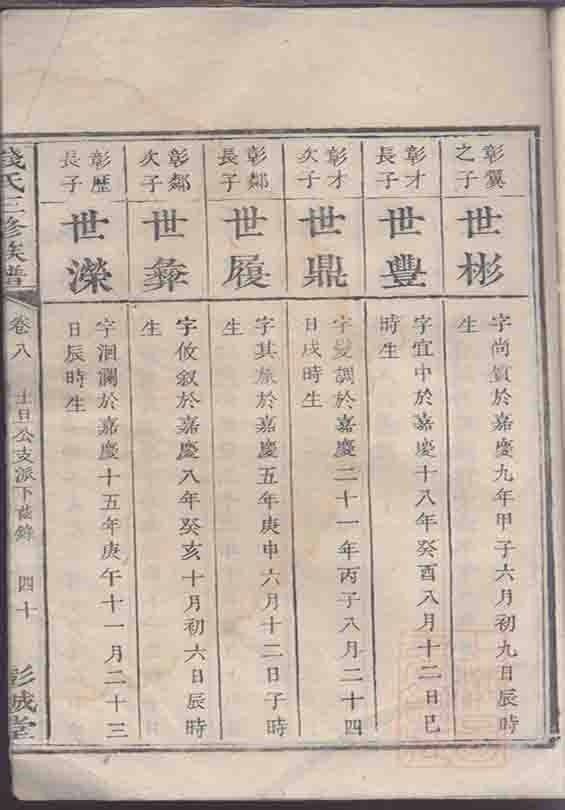 彰翼
之子
世彬
字尚質於嘉慶九年甲子六月初九日辰時
生
彰才
長子
世豐
字宜中於嘉慶十八年癸酉八月十二日巳
時生
彰才
次子
世鼎
字燮調於嘉慶二十一年丙子八月二十四
日戌時生
彰鄰
長子
世履
字其旅於嘉慶五年庚申六月十二日子時
生
彰鄰
次子
世彜
字攸叙於嘉慶八年癸亥十月初六日辰時
生
彰歷
長子
世濚
字洄瀾於嘉慶十五年庚午十一月二十三
日辰時生
錢氏三修族譜
卷八
士旦公支派下齒錄
四十
彭城堂